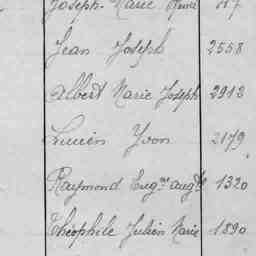 Joseph Marie
Jean Joseph 2558
Albert Marie Joseph 2912
Lucien Yvon 2179
Raymond Eugne augte 1320
Théophile Julien Marie 1890